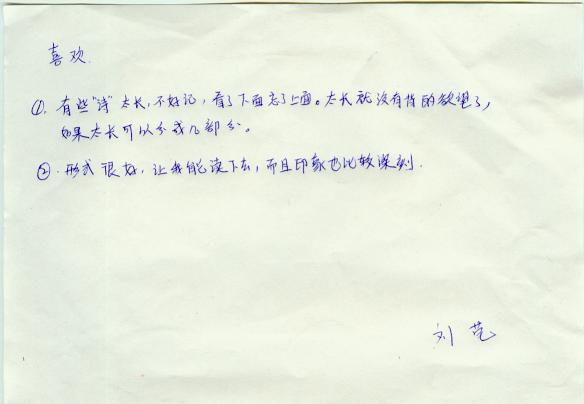 喜欢.
①. 有些"诗"太长,不好记,看了下面忘了上面。太长就没有背的欲望了,
如果太长可以分成几部分。
②. 形式很好,让我能读下去,而且印象也比较深刻.
刘艺